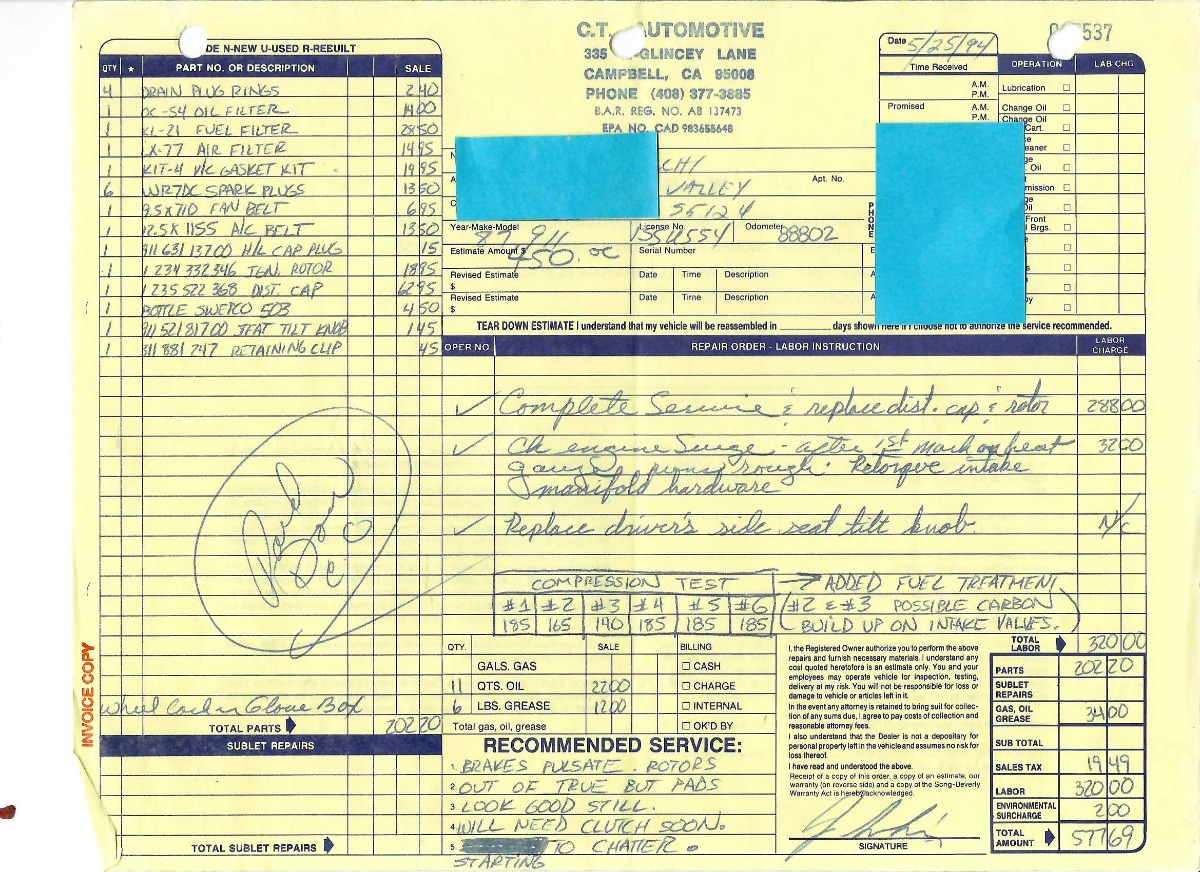 C.T. AUTOMOTIVE
335 GLINCEY LANE
CAMPBELL, CA 95008
PHONE (408) 377-3885
B.A.R. REG. NO. AB 137473
EPA NO. CAD 983655648
537
Date 5/25/94
Time Received
A.M.
P.M.
Promised
A.M.
P.M.
OPERATION LAB CHG
Lubrication
Change Oil
Change Oil
Cart.
eaner
Oil
mission
Oil
Front
Brgs.
DE N-NEW U-USED R-REBUILT
QTY ★ PART NO. OR DESCRIPTION SALE
4 DRAIN PLUG RINGS 2 40
1 OC-54 OIL FILTER 14 00
1 KL-21 FUEL FILTER 28 50
1 LX-77 AIR FILTER 14 95
1 KIT-4 V/C GASKET KIT 19 95
6 WR7DC SPARK PLUGS 13 50
1 9.5 X 710 FAN BELT 6 95
1 12.5 X 1155 A/C BELT 13 50
1 911 631 137 00 H/L CAP PLUG 15
1 1 234 332 346 IGN. ROTOR 18 95
1 1 235 522 368 DIST. CAP 62 95
1 BOTTLE SWEPCO 503 4 50
1 911 521 817 00 SEAT TILT KNOB 1 45
1 311 881 247 RETAINING CLIP 45
CHI
VALLEY
55124
Apt. No.
PHONE
Year-Make-Model 87 911
License No. 1SSU554
Odometer 88802
Estimate Amount $ 450.00
Serial Number
Revised Estimate $ Date Time Description
Revised Estimate $ Date Time Description
TEAR DOWN ESTIMATE I understand that my vehicle will be reassembled in ________ days shown here if I choose not to authorize the service recommended.
OPER NO REPAIR ORDER - LABOR INSTRUCTION LABOR CHARGE
✓ Complete Service & replace dist. cap & rotor 288 00
✓ Ck engine Surge - after 1st mark on heat 32 00
gauge, runs rough. Retorque intake
manifold hardware
✓ Replace driver's side seat tilt knob. N/C
COMPRESSION TEST
#1 #2 #3 #4 #5 #6
185 165 140 185 185 185
→ ADDED FUEL TREATMENT
(#2 & #3 POSSIBLE CARBON
BUILD UP ON INTAKE VALVES.)
Paid
INVOICE COPY
Wheel Lock in Glove Box
TOTAL PARTS 202 20
SUBLET REPAIRS
TOTAL SUBLET REPAIRS
QTY. SALE BILLING
GALS. GAS CASH
11 QTS. OIL 22 00 CHARGE
6 LBS. GREASE 12 00 INTERNAL
Total gas, oil, grease OK'D BY
RECOMMENDED SERVICE:
1 BRAKES PULSATE. ROTORS
2 OUT OF TRUE BUT PADS
3 LOOK GOOD STILL.
4 WILL NEED CLUTCH SOON.
5 TO CHATTER.
STARTING
I, the Registered Owner authorize you to perform the above
repairs and furnish necessary materials. I understand any
cost quoted heretofore is an estimate only. You and your
employees may operate vehicle for inspection, testing,
delivery at my risk. You will not be responsible for loss or
damage to vehicle or articles left in it.
In the event any attorney is retained to bring suit for collec-
tion of any sums due, I agree to pay costs of collection and
reasonable attorney fees.
I also understand that the Dealer is not a depositary for
personal property left in the vehicle and assumes no risk for
loss thereof.
I have read and understood the above.
Receipt of a copy of this order, a copy of an estimate, our
warranty (on reverse side) and a copy of the Song-Beverly
Warranty Act is hereby acknowledged.
SIGNATURE
TOTAL LABOR 320 00
PARTS 202 20
SUBLET REPAIRS
GAS, OIL GREASE 34 00
SUB TOTAL
SALES TAX 19 49
LABOR 320 00
ENVIRONMENTAL SURCHARGE 2 00
TOTAL AMOUNT 577 69